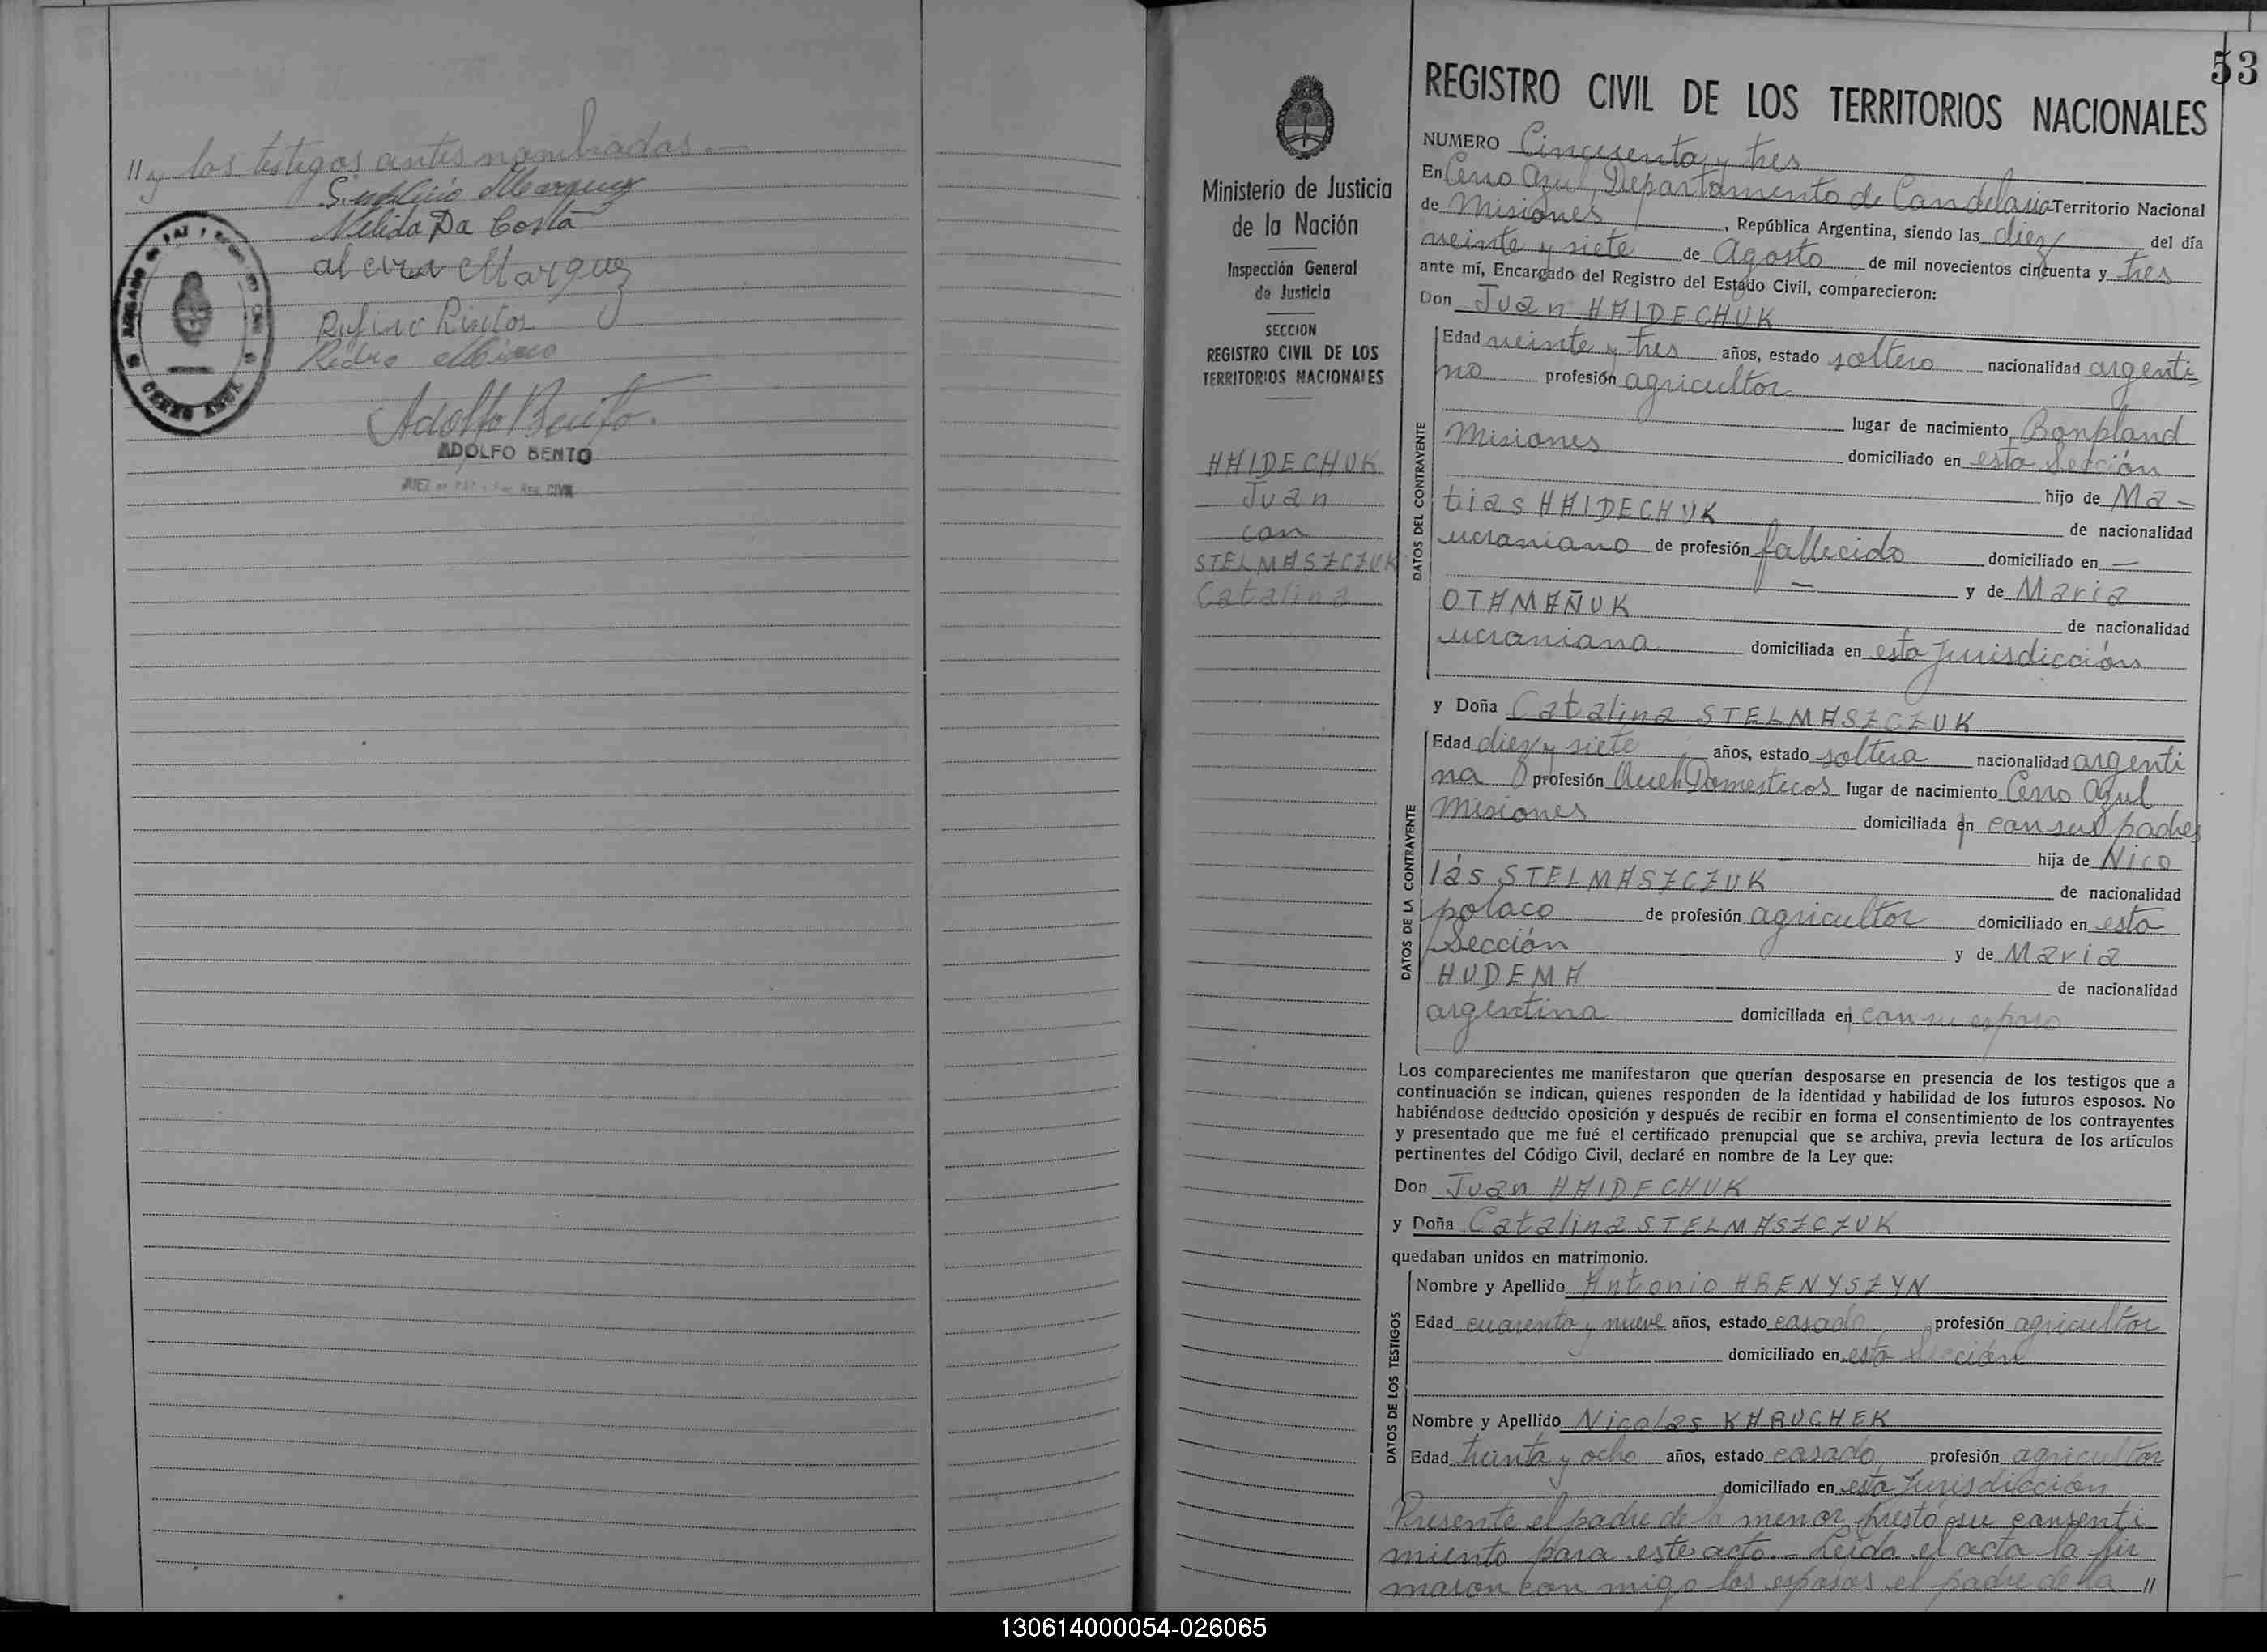 "y los testigos antes nombrados.—
Nelida Da Costa
Marquez
Rufino
Pedro
Adolfo Bento.
ADOLFO BENTO
JUEZ DE PAZ
CERRO AZUL
53
REGISTRO CIVIL DE LOS TERRITORIOS NACIONALES
Ministerio de Justicia
de la Nación
Inspección General
de Justicia
SECCION
REGISTRO CIVIL DE LOS
TERRITORIOS NACIONALES
HAIDECHUK
Juan
con
STELMASZCZUK
Catalina
NUMERO Cincuenta y tres
En Cerro Azul, Departamento de Candelaria Territorio Nacional
de Misiones, República Argentina, siendo las diez del día
veinte y siete de Agosto de mil novecientos cincuenta y tres
ante mí, Encargado del Registro del Estado Civil, comparecieron:
Don Juan HAIDECHUK
DATOS DEL CONTRAYENTE
Edad veinte y tres años, estado soltero nacionalidad argenti-
no profesión agricultor
lugar de nacimiento Bonpland
Misiones domiciliado en esta Sección
hijo de Ma-
tias HAIDECHUK de nacionalidad
ucraniano de profesión fallecido domiciliado en —
— y de Maria
OTAMAÑUK de nacionalidad
ucraniana domiciliada en esta Jurisdicción
y Doña Catalina STELMASZCZUK
DATOS DE LA CONTRAYENTE
Edad diez y siete años, estado soltera nacionalidad argenti
na profesión Queh Domesticos lugar de nacimiento Cerro Azul
Misiones domiciliada en con sus padres
hija de Nico
lás STELMASZCZUK de nacionalidad
polaco de profesión agricultor domiciliado en esta
Sección y de Maria
HUDEMA de nacionalidad
argentina domiciliada en con su esposo
Los comparecientes me manifestaron que querían desposarse en presencia de los testigos que a
continuación se indican, quienes responden de la identidad y habilidad de los futuros esposos. No
habiéndose deducido oposición y después de recibir en forma el consentimiento de los contrayentes
y presentado que me fué el certificado prenupcial que se archiva, previa lectura de los artículos
pertinentes del Código Civil, declaré en nombre de la Ley que:
Don Juan HAIDECHUK
y Doña Catalina STELMASZCZUK
quedaban unidos en matrimonio.
DATOS DE LOS TESTIGOS
Nombre y Apellido Antonio HRENYSZYN
Edad cuarenta y nueve años, estado casado profesión agricultor
domiciliado en esta Sección
Nombre y Apellido Nicolas KARUCHEK
Edad treinta y ocho años, estado casado profesión agricultor
domiciliado en esta Jurisdicción
Presente el padre de la menor prestó su consenti
miento para este acto.- Leida el acta la fir
maron con migo los esposos el padre de la "
130614000054-026065